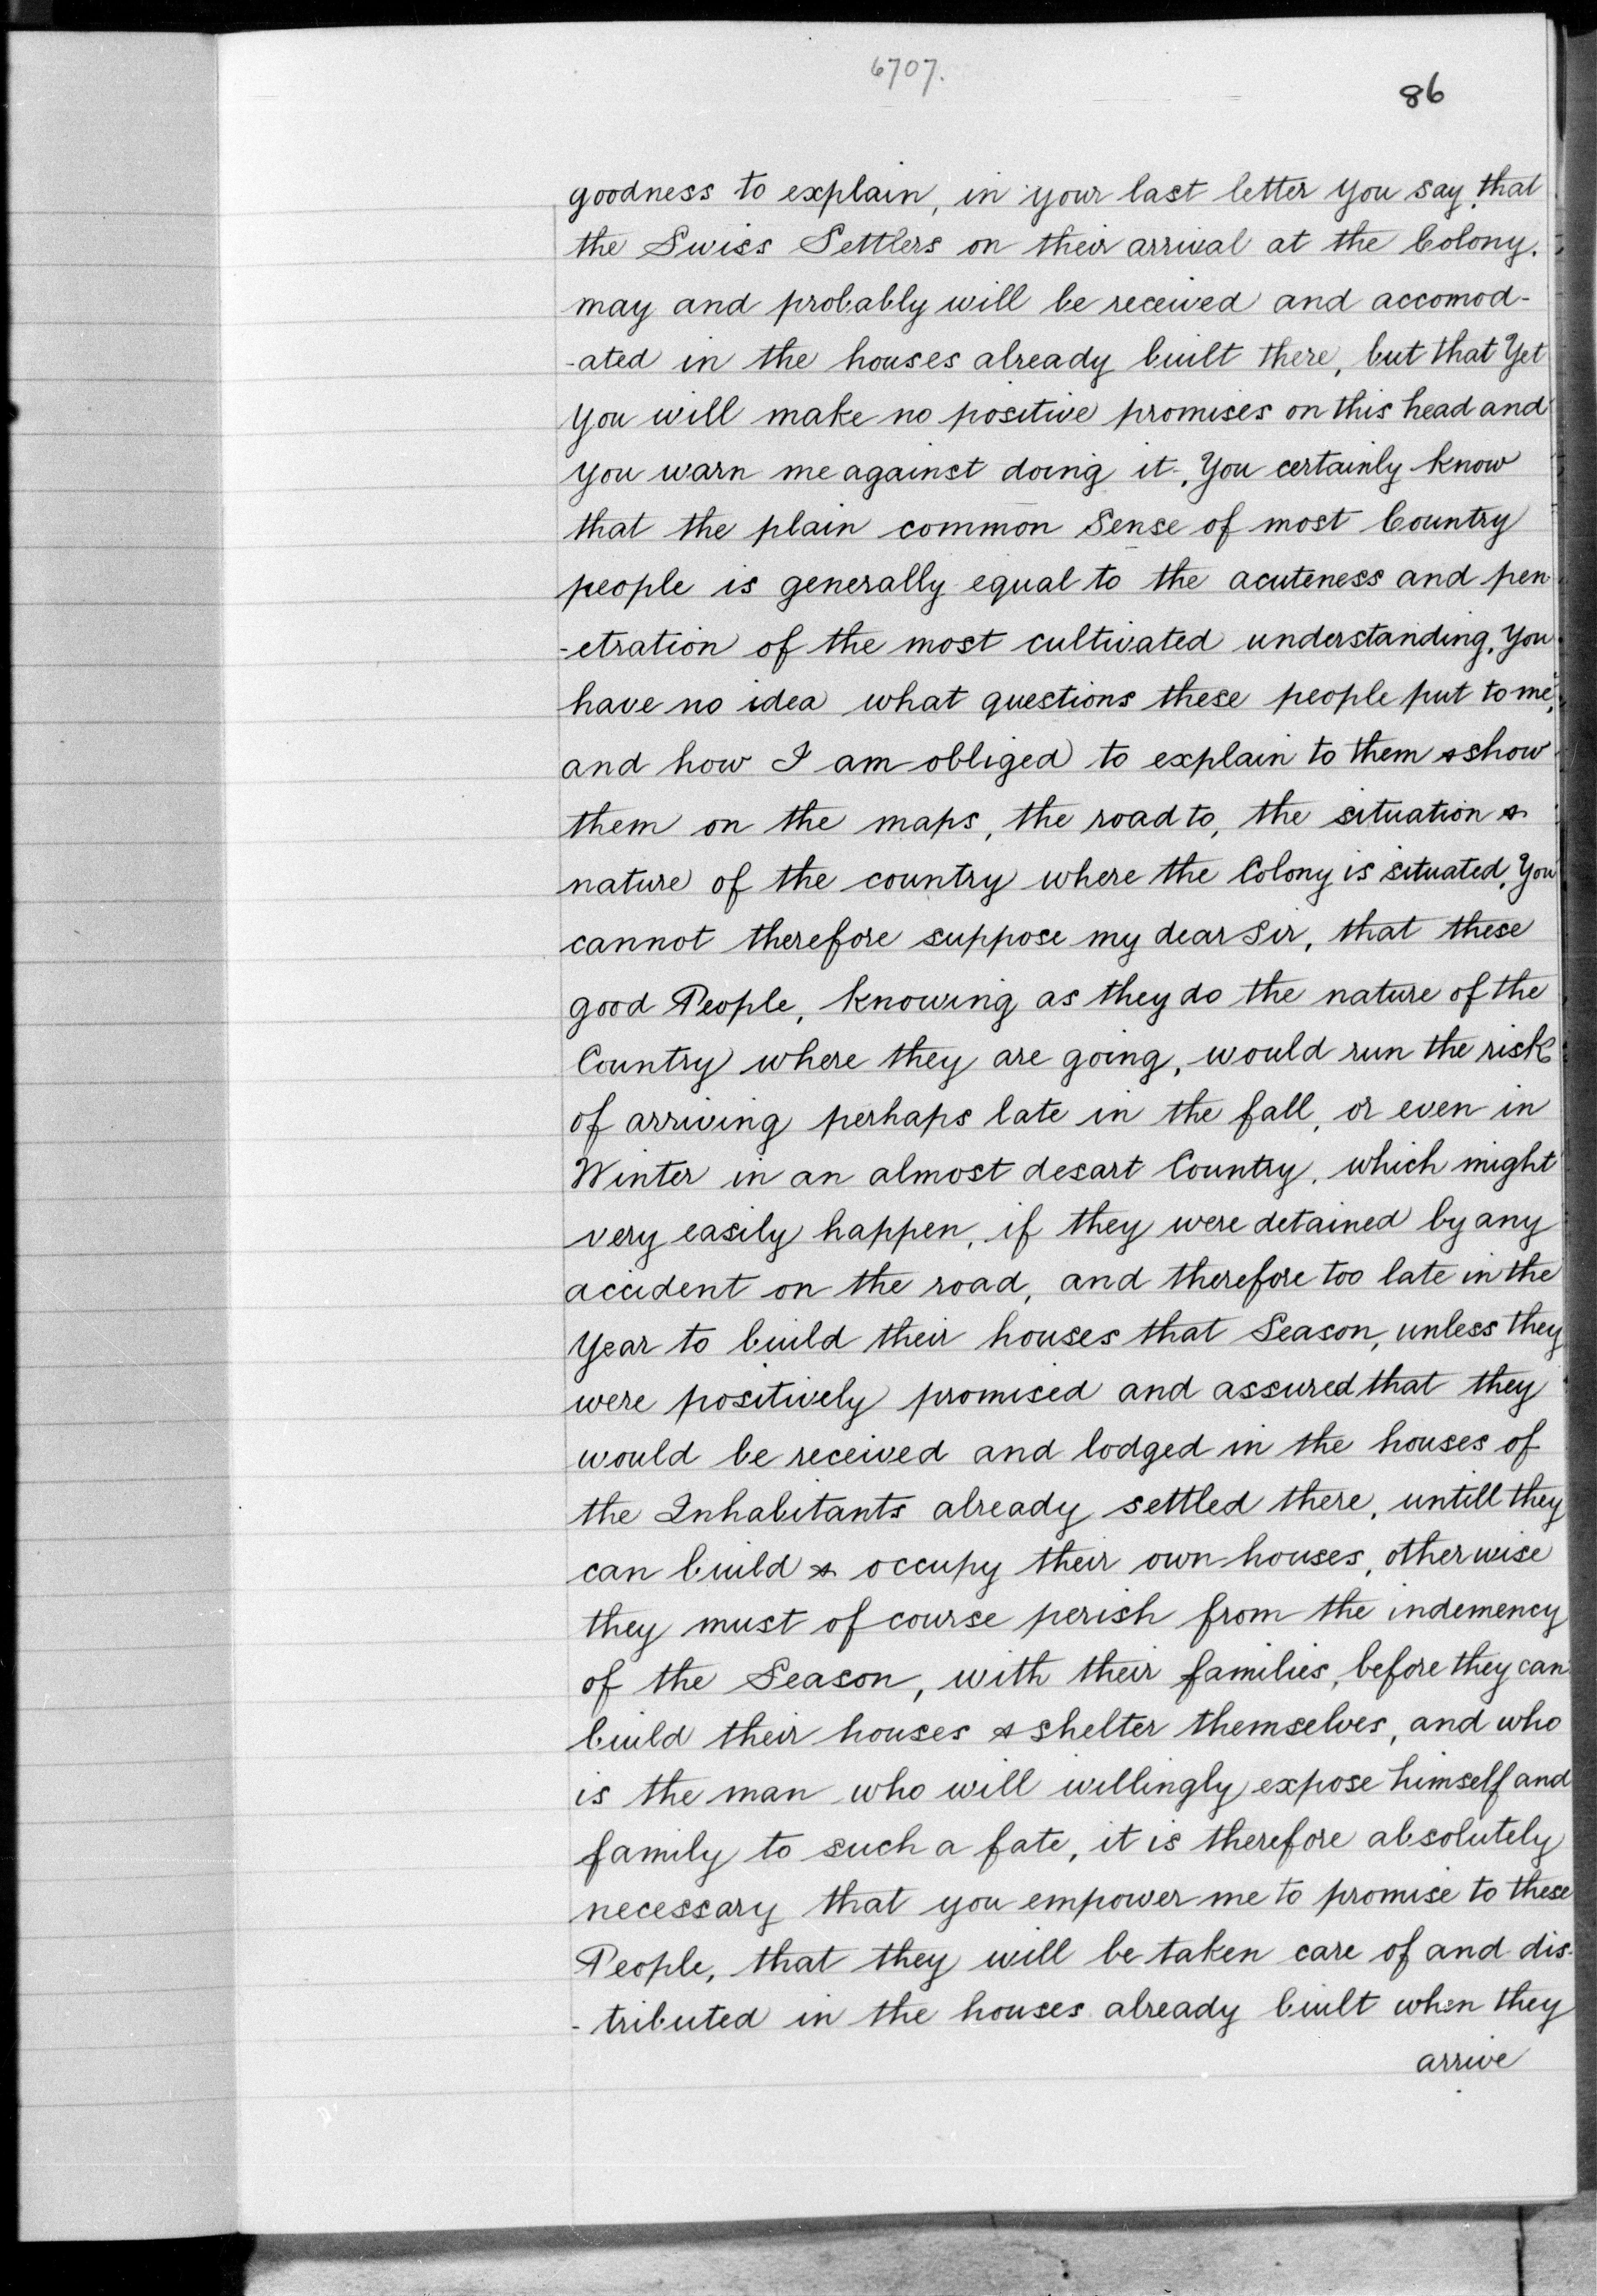 6707.
86
goodness to explain, in your last letter you say, that
the Swiss Settlers on their arrival at the Colony.
may and probably will be received and accomod-
-ated in the houses already built there, but that Yet
you will make no positive promises on this head and
you warn me against doing it. You certainly know
that the plain common Sense of most Country
people is generally equal to the acuteness and pen-
-etration of the most cultivated understanding. You
have no idea what questions these people put to me,
and how I am obliged to explain to them & show
them on the maps, the road to, the situation &
nature of the country where the Colony is situated. You
cannot therefore suppose my dear Sir, that these
good People, knowing as they do the nature of the
Country where they are going, would run the risk
of arriving perhaps late in the fall, or even in
Winter in an almost desart Country, which might
very easily happen, if they were detained by any
accident on the road, and therefore too late in the
Year to build their houses that Season, unless they
were positively promised and assured that they
would be received and lodged in the houses of
the Inhabitants already settled there, untill they
can build & occupy their own houses, otherwise
they must of course perish from the indemency
of the Season, with their families, before they can
build their houses & shelter themselves, and who
is the man who will willingly expose himself and
family to such a fate, it is therefore absolutely
necessary that you empower me to promise to these
People, that they will be taken care of and dis-
-tributed in the houses already built when they
arrive